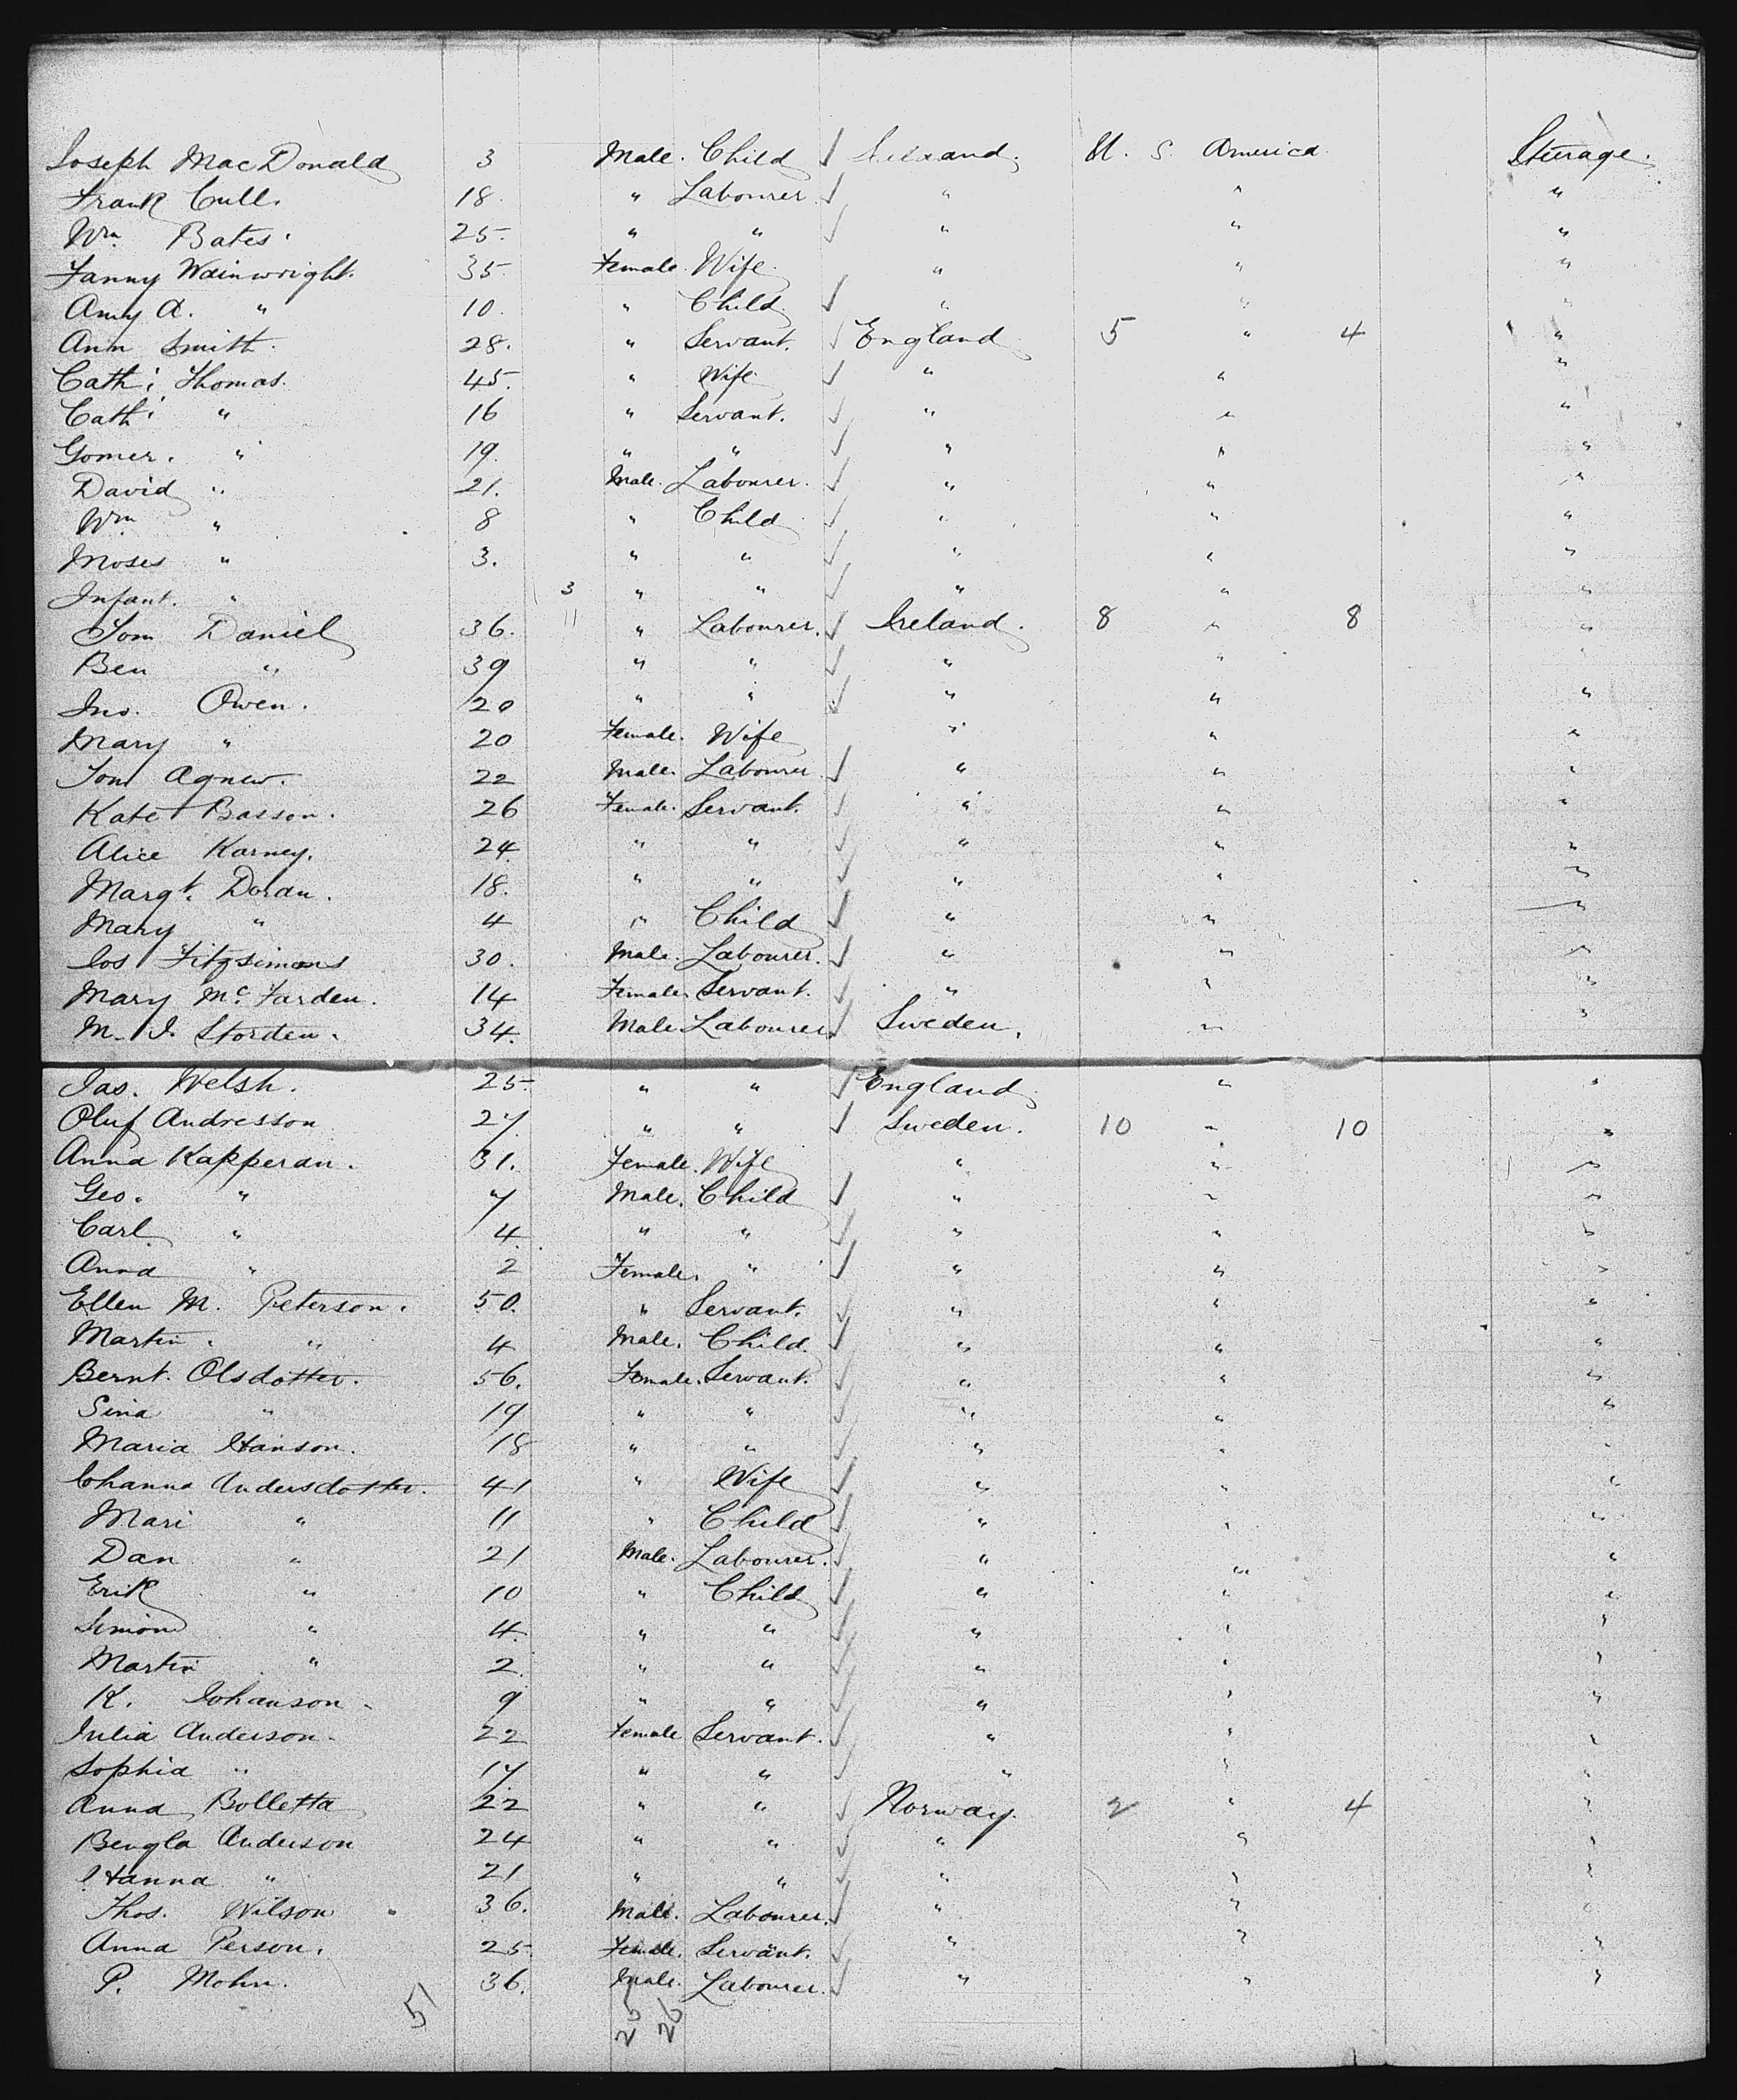 Joseph MacDonald 3 Male. Child ✓ Ireland. U. S. America Steerage.
Frank Cull. 18. " Labourer. ✓ " " "
Wm Bates. 25. " " ✓ " " "
Fanny Wainwright. 35 Female. Wife. " " "
Amy A. " 10. " Child ✓ " " "
Ann Smith. 28. " Servant. ✓ England 5 " 4 "
Cath: Thomas. 45. " Wife ✓ " " "
Cath: " 16 " Servant. ✓ " " "
Gomer. " 19. " " ✓ " " "
David " 21. Male. Labourer. ✓ " " "
Wm " 8 " Child ✓ " " "
Moses " 3. " " ✓ " " "
Infant. " 3 " " ✓ " " "
Tom Daniel 36. 11 " Labourer. ✓ Ireland. 8 " 8 "
Ben " 39 " " ✓ " " "
Jno. Owen. 20 " " ✓ " " "
Mary " 20 Female. Wife " " "
Tom Agnew. 22 Male. Labourer ✓ " " "
Kate Basson. 26 Female. Servant. ✓ " " "
Alice Karney. 24. " " ✓ " " "
Margt. Doran. 18. " " ✓ " " "
Mary " 4 " Child ✓ " " "
Jos Fitzsimons 30. Male. Labourer. ✓ " " "
Mary Mc. Farden. 14 Female. Servant. ✓ " " "
M. J. Storden. 34. Male Labourer. ✓ Sweden. " "
Jas. Welsh. 25. " " ✓ England " "
Oluf Andresson 27. " " ✓ Sweden. 10 " 10 "
Anna Kapperan. 31. Female. Wife " " "
Geo. " 7 Male. Child ✓ " " "
Carl " 4. " " ✓ " " "
Anna " 2 Female. " ✓ " " "
Ellen M. Peterson. 50. " Servant. ✓ " " "
Martin. " 4 Male. Child. ✓ " " "
Bernt. Olsdotter. 56. Female. Servant. ✓ " " "
Sina " 19 " " ✓ " " "
Maria Hanson. 18 " " ✓ " " "
Johanna Andersdotter. 41 " Wife ✓ " " "
Mari " 11 " Child ✓ " " "
Dan " 21 Male. Labourer. ✓ " " "
Erik " 10 " Child ✓ " " "
Simon " 4. " " ✓ " " "
Martin " 2. " " ✓ " " "
K. Johanson. 9 " " ✓ " " "
Julia Anderson. 22 Female Servant. ✓ " " "
Sophia " 17. " " ✓ " " "
Anna Bolletta 22 " " ✓ Norway. 2 " 4 "
Bengla Anderson 24 " " ✓ " " "
Hanna " 21 " " ✓ " " "
Thos. Wilson 36. Male. Labourer. ✓ " " "
Anna Person. 25. Female. Servant. ✓ " " "
P. Mohn. 36. Male. Labourer. ✓ " " "
51 25 26